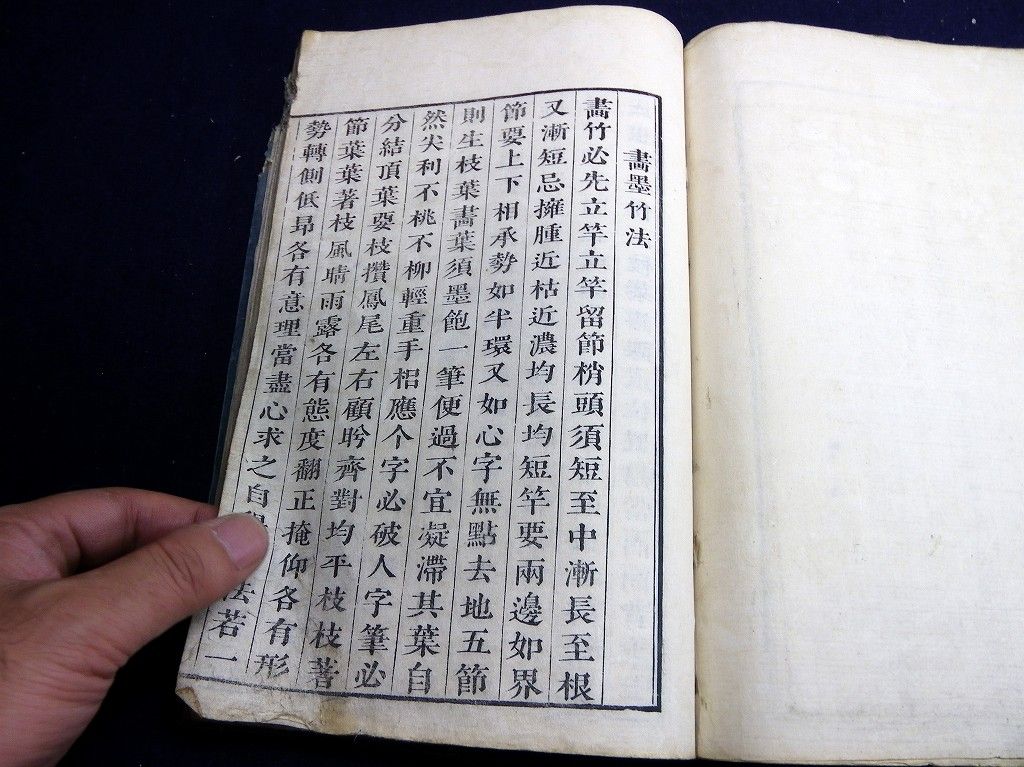 畵墨竹法
畵竹必先立竿立竿留節梢頭須短至中漸長至根
又漸短忌擁腫近枯近濃均長均短竿要兩邊如界
節要上下相承勢如半環又如心字無點去地五節
則生枝葉畵葉須墨飽一筆便過不宜凝滯其葉自
然尖利不桃不柳輕重手相應个字必破人字筆必
分結頂葉要枝攢鳳尾左右顧盻齊對均平枝枝著
節葉葉著枝風晴雨露各有態度翻正掩仰各有形
勢轉側低昂各有意理當盡心求之自法若一